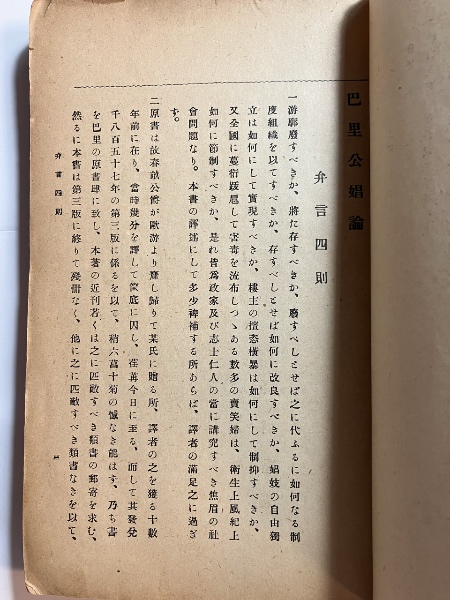 巴里公娼論
弁言四則
一游廓廢すべきか、將た存すべきか、廢すべしとせば之に代ふるに如何なる制
度組織を以てすべきか、存すべしとせば如何に改良すべきか、娼妓の自由獨
立は如何にして實現すべきか、樓主の擅恣橫暴は如何にして制抑すべきか、
又全國に蔓衍跋扈して害毒を流布しつゝある數多の賣笑婦は、衛生上風紀上
如何に節制すべきか、是れ皆爲政家及び志士仁人の當に講究すべき焦眉の社
會問題なり。本書の譯述にして多少裨補する所あらば、譯者の滿足之に過ぎ
す。
二原書は故春畝公爵が歐游より齎し歸りて某氏に贈る所、譯者の之を獲る十數
年前に在り、當時幾分を譯して篋底に囚し、荏苒今日に至る、而して其發兌
千八百五十七年の第三版に係るを以て、稍六菖十菊の憾なき能はす、乃ち書
を巴里の原書肆に致し、本著の近刊若くは之に匹敵すべき類書の郵寄を求む、
然るに本書は第三版に終りて殘册なく、他に之に匹敵すべき類書なきを以て、
弁言四則
一